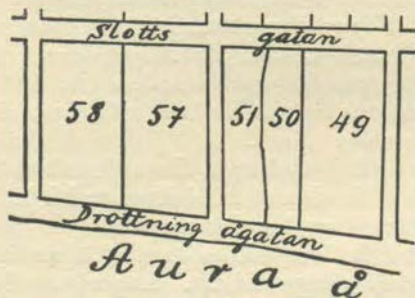 Slotts gatan
58 57 51 50 49
Drottning ågatan
Aura å